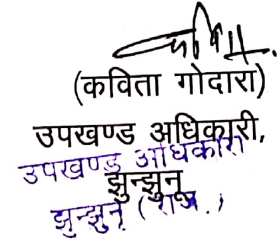 (कविता गोदारा)
उपखण्ड अधिकारी,
उपखण्ड अधिकारी
झुन्झुनू
झुन्झुनू (राज.)